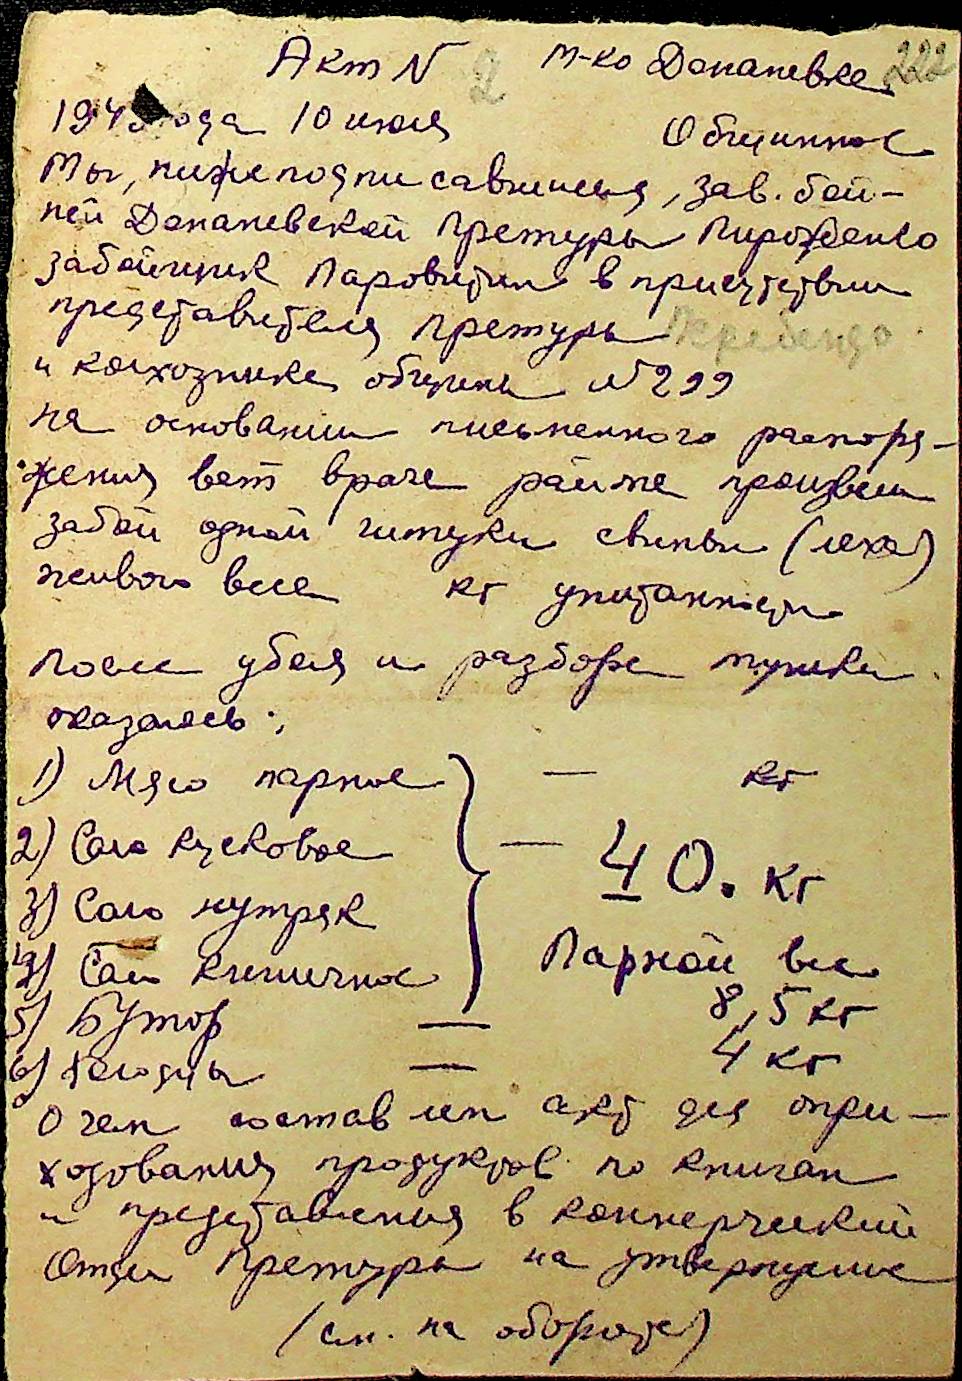 Акт N 2 м-ко Доманевка 222
1943 года 10 июля Общинное
Мы, нижеподписавшиеся, зав. бой-
ней Доманевской Претуры Пирожденко
забойщик Паровитин в присутствии
представителя Претуры
и колхозника общины №299
на основании письменного распоря-
жения вет врача района произвели
забой одной штуки свиньи (леха)
живого веса кг упитанности
После убоя и разборе тушки
оказалось:
1) Мясо парное — кг
2) Сало кусковое — 40. кг
3) Сало нутряк
4) Сало кишечное Парной вес
5) Бутор — 8,5 кг
6) — 4 кг
О чем составлен акт для опри-
ходования продуктов по книгам
и представления в коммерческий
Отдел Претуры на утверждение
(см. на обороте)